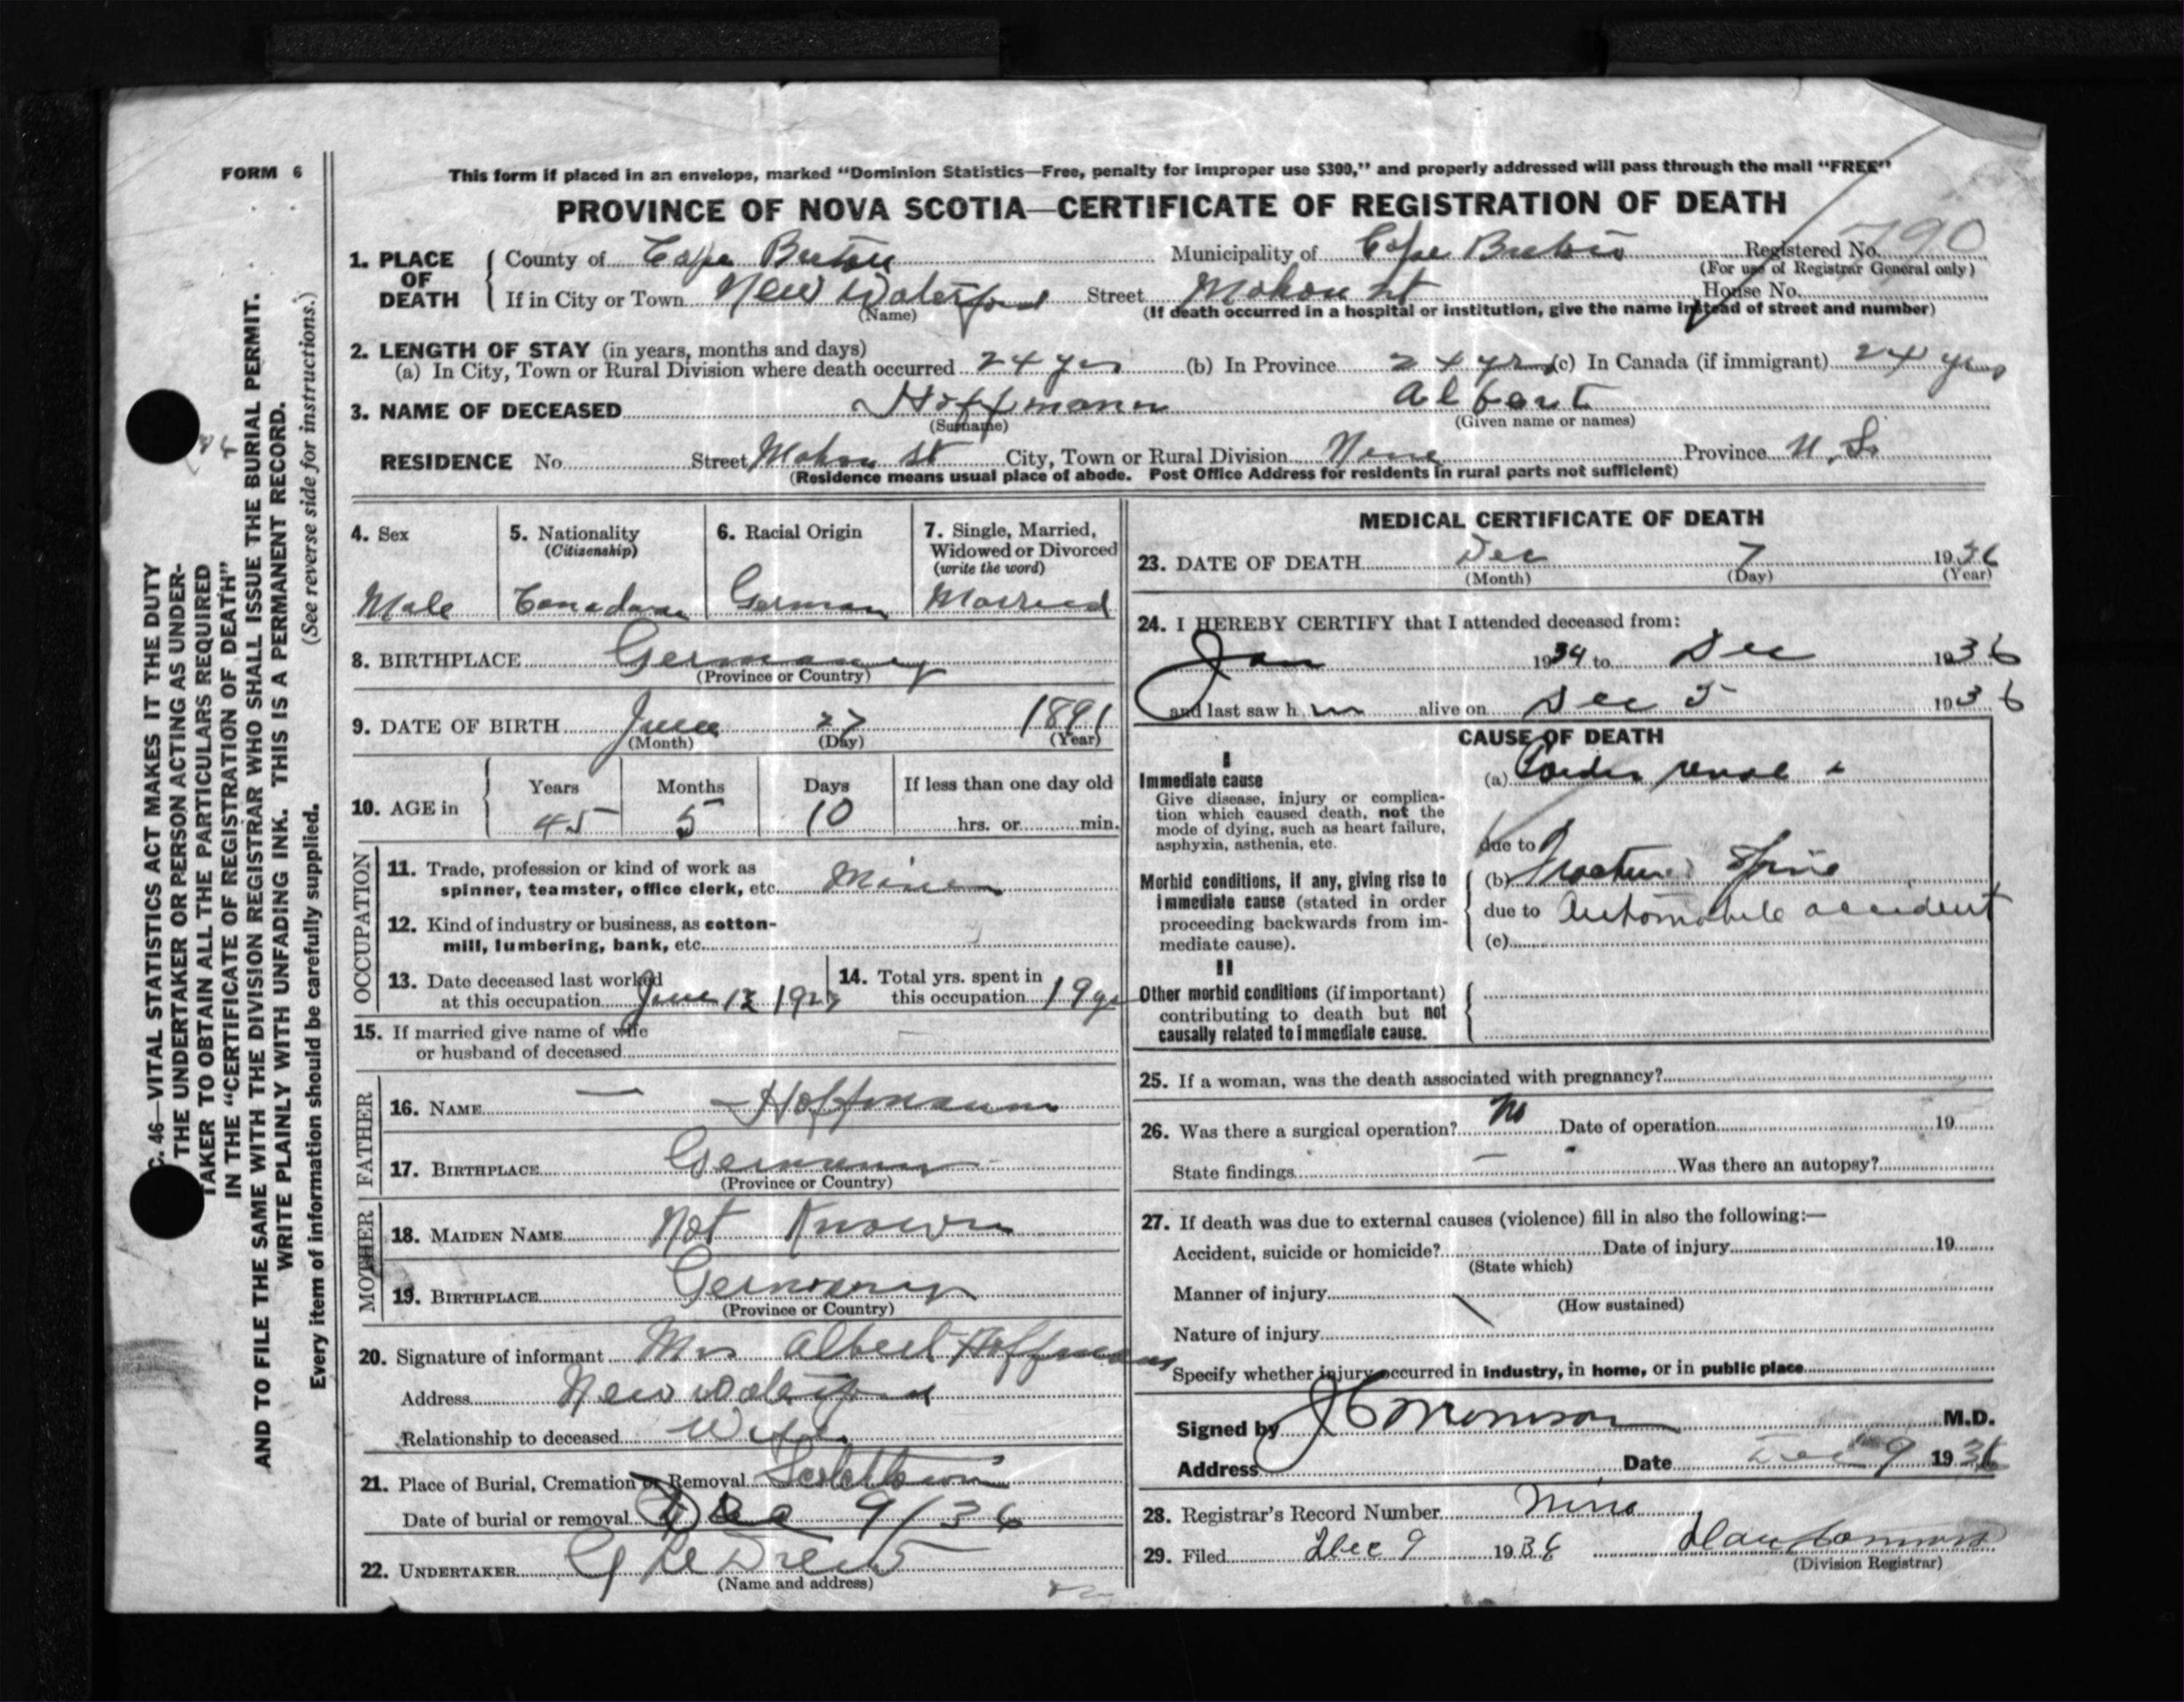 FORM 6
This form if placed in an envelope, marked "Dominion Statistics—Free, penalty for improper use $300," and properly addressed will pass through the mail "FREE"
PROVINCE OF NOVA SCOTIA—CERTIFICATE OF REGISTRATION OF DEATH
1. PLACE OF DEATH
County of Cape Breton Municipality of Cape Breton Registered No. 790
(For use of Registrar General only)
If in City or Town New Waterford Street Mahon St House No.
(Name) (If death occurred in a hospital or institution, give the name instead of street and number)
2. LENGTH OF STAY (in years, months and days)
(a) In City, Town or Rural Division where death occurred 24 yrs (b) In Province 24 yrs (c) In Canada (if immigrant) 24 yrs
3. NAME OF DECEASED Hoffmann Albert
(Surname) (Given name or names)
RESIDENCE No. Street Mahon St City, Town or Rural Division Province N.S.
(Residence means usual place of abode. Post Office Address for residents in rural parts not sufficient)
4. Sex
Male
5. Nationality
(Citizenship)
Canadian
6. Racial Origin
German
7. Single, Married,
Widowed or Divorced
(write the word)
Married
8. BIRTHPLACE Germany
(Province or Country)
9. DATE OF BIRTH June 27 1891
(Month) (Day) (Year)
10. AGE in
Years Months Days If less than one day old
45 5 10 hrs. or min.
OCCUPATION
11. Trade, profession or kind of work as
spinner, teamster, office clerk, etc. Miner
12. Kind of industry or business, as cotton-
mill, lumbering, bank, etc.
13. Date deceased last worked
at this occupation June
14. Total yrs. spent in
this occupation 19 yrs
15. If married give name of wife
or husband of deceased
FATHER
16. NAME — Hoffmann
17. BIRTHPLACE Germany
(Province or Country)
MOTHER
18. MAIDEN NAME Not Known
19. BIRTHPLACE Germany
(Province or Country)
20. Signature of informant Mrs Albert Hoffmann
Address New Waterford
Relationship to deceased Wife
21. Place of Burial, Cremation or Removal
Date of burial or removal Dec 9/36
22. UNDERTAKER
(Name and address)
MEDICAL CERTIFICATE OF DEATH
23. DATE OF DEATH Dec 7 1936
(Month) (Day) (Year)
24. I HEREBY CERTIFY that I attended deceased from:
Jan 1934 to Dec 1936
and last saw h im alive on Dec 5 1936
CAUSE OF DEATH
I
Immediate cause
Give disease, injury or complica-
tion which caused death, not the
mode of dying, such as heart failure,
asphyxia, asthenia, etc.
(a) Cardio renal
due to
Morbid conditions, if any, giving rise to
immediate cause (stated in order
proceeding backwards from im-
mediate cause).
(b) Fractured Spine
due to Automobile accident
(c)
II
Other morbid conditions (if important)
contributing to death but not
causally related to immediate cause.
25. If a woman, was the death associated with pregnancy?
26. Was there a surgical operation? No Date of operation 19
State findings — Was there an autopsy?
27. If death was due to external causes (violence) fill in also the following:—
Accident, suicide or homicide? Date of injury 19
(State which)
Manner of injury
(How sustained)
Nature of injury
Specify whether injury occurred in industry, in home, or in public place
Signed by J C Morrison M.D.
Address Date Dec 9 1936
28. Registrar's Record Number
29. Filed Dec 9 1936
(Division Registrar)
C. 46—VITAL STATISTICS ACT MAKES IT THE DUTY
THE UNDERTAKER OR PERSON ACTING AS UNDER-
TAKER TO OBTAIN ALL THE PARTICULARS REQUIRED
IN THE "CERTIFICATE OF REGISTRATION OF DEATH"
AND TO FILE THE SAME WITH THE DIVISION REGISTRAR WHO SHALL ISSUE THE BURIAL PERMIT.
WRITE PLAINLY WITH UNFADING INK. THIS IS A PERMANENT RECORD.
Every item of information should be carefully supplied. (See reverse side for instructions.)